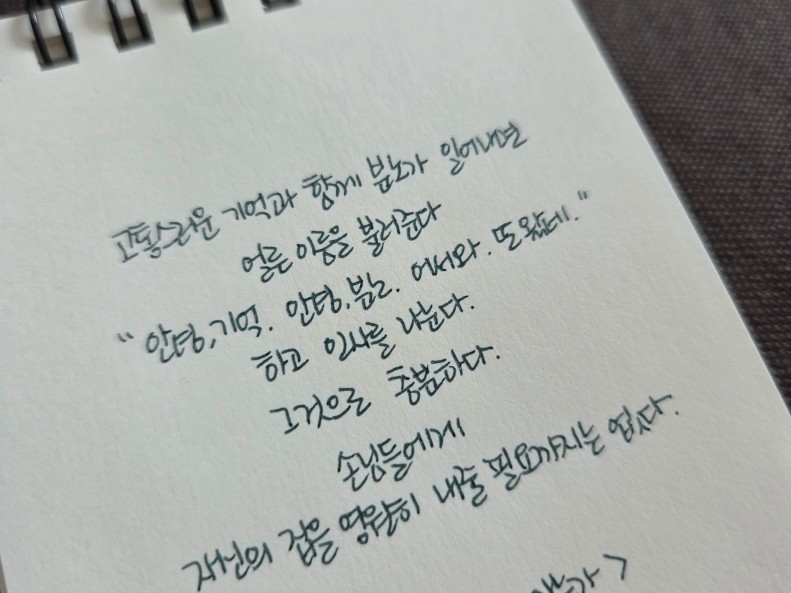 고통스러운 기억과 함께 분노가 일어나면
얼른 이름을 불러준다
"안녕, 기억. 안녕, 분노. 어서와. 또 왔네."
하고 인사를 나눈다.
그것으로 충분하다.
손님들에게
자신의 집을 영원히 내줄 필요까지는 없다.